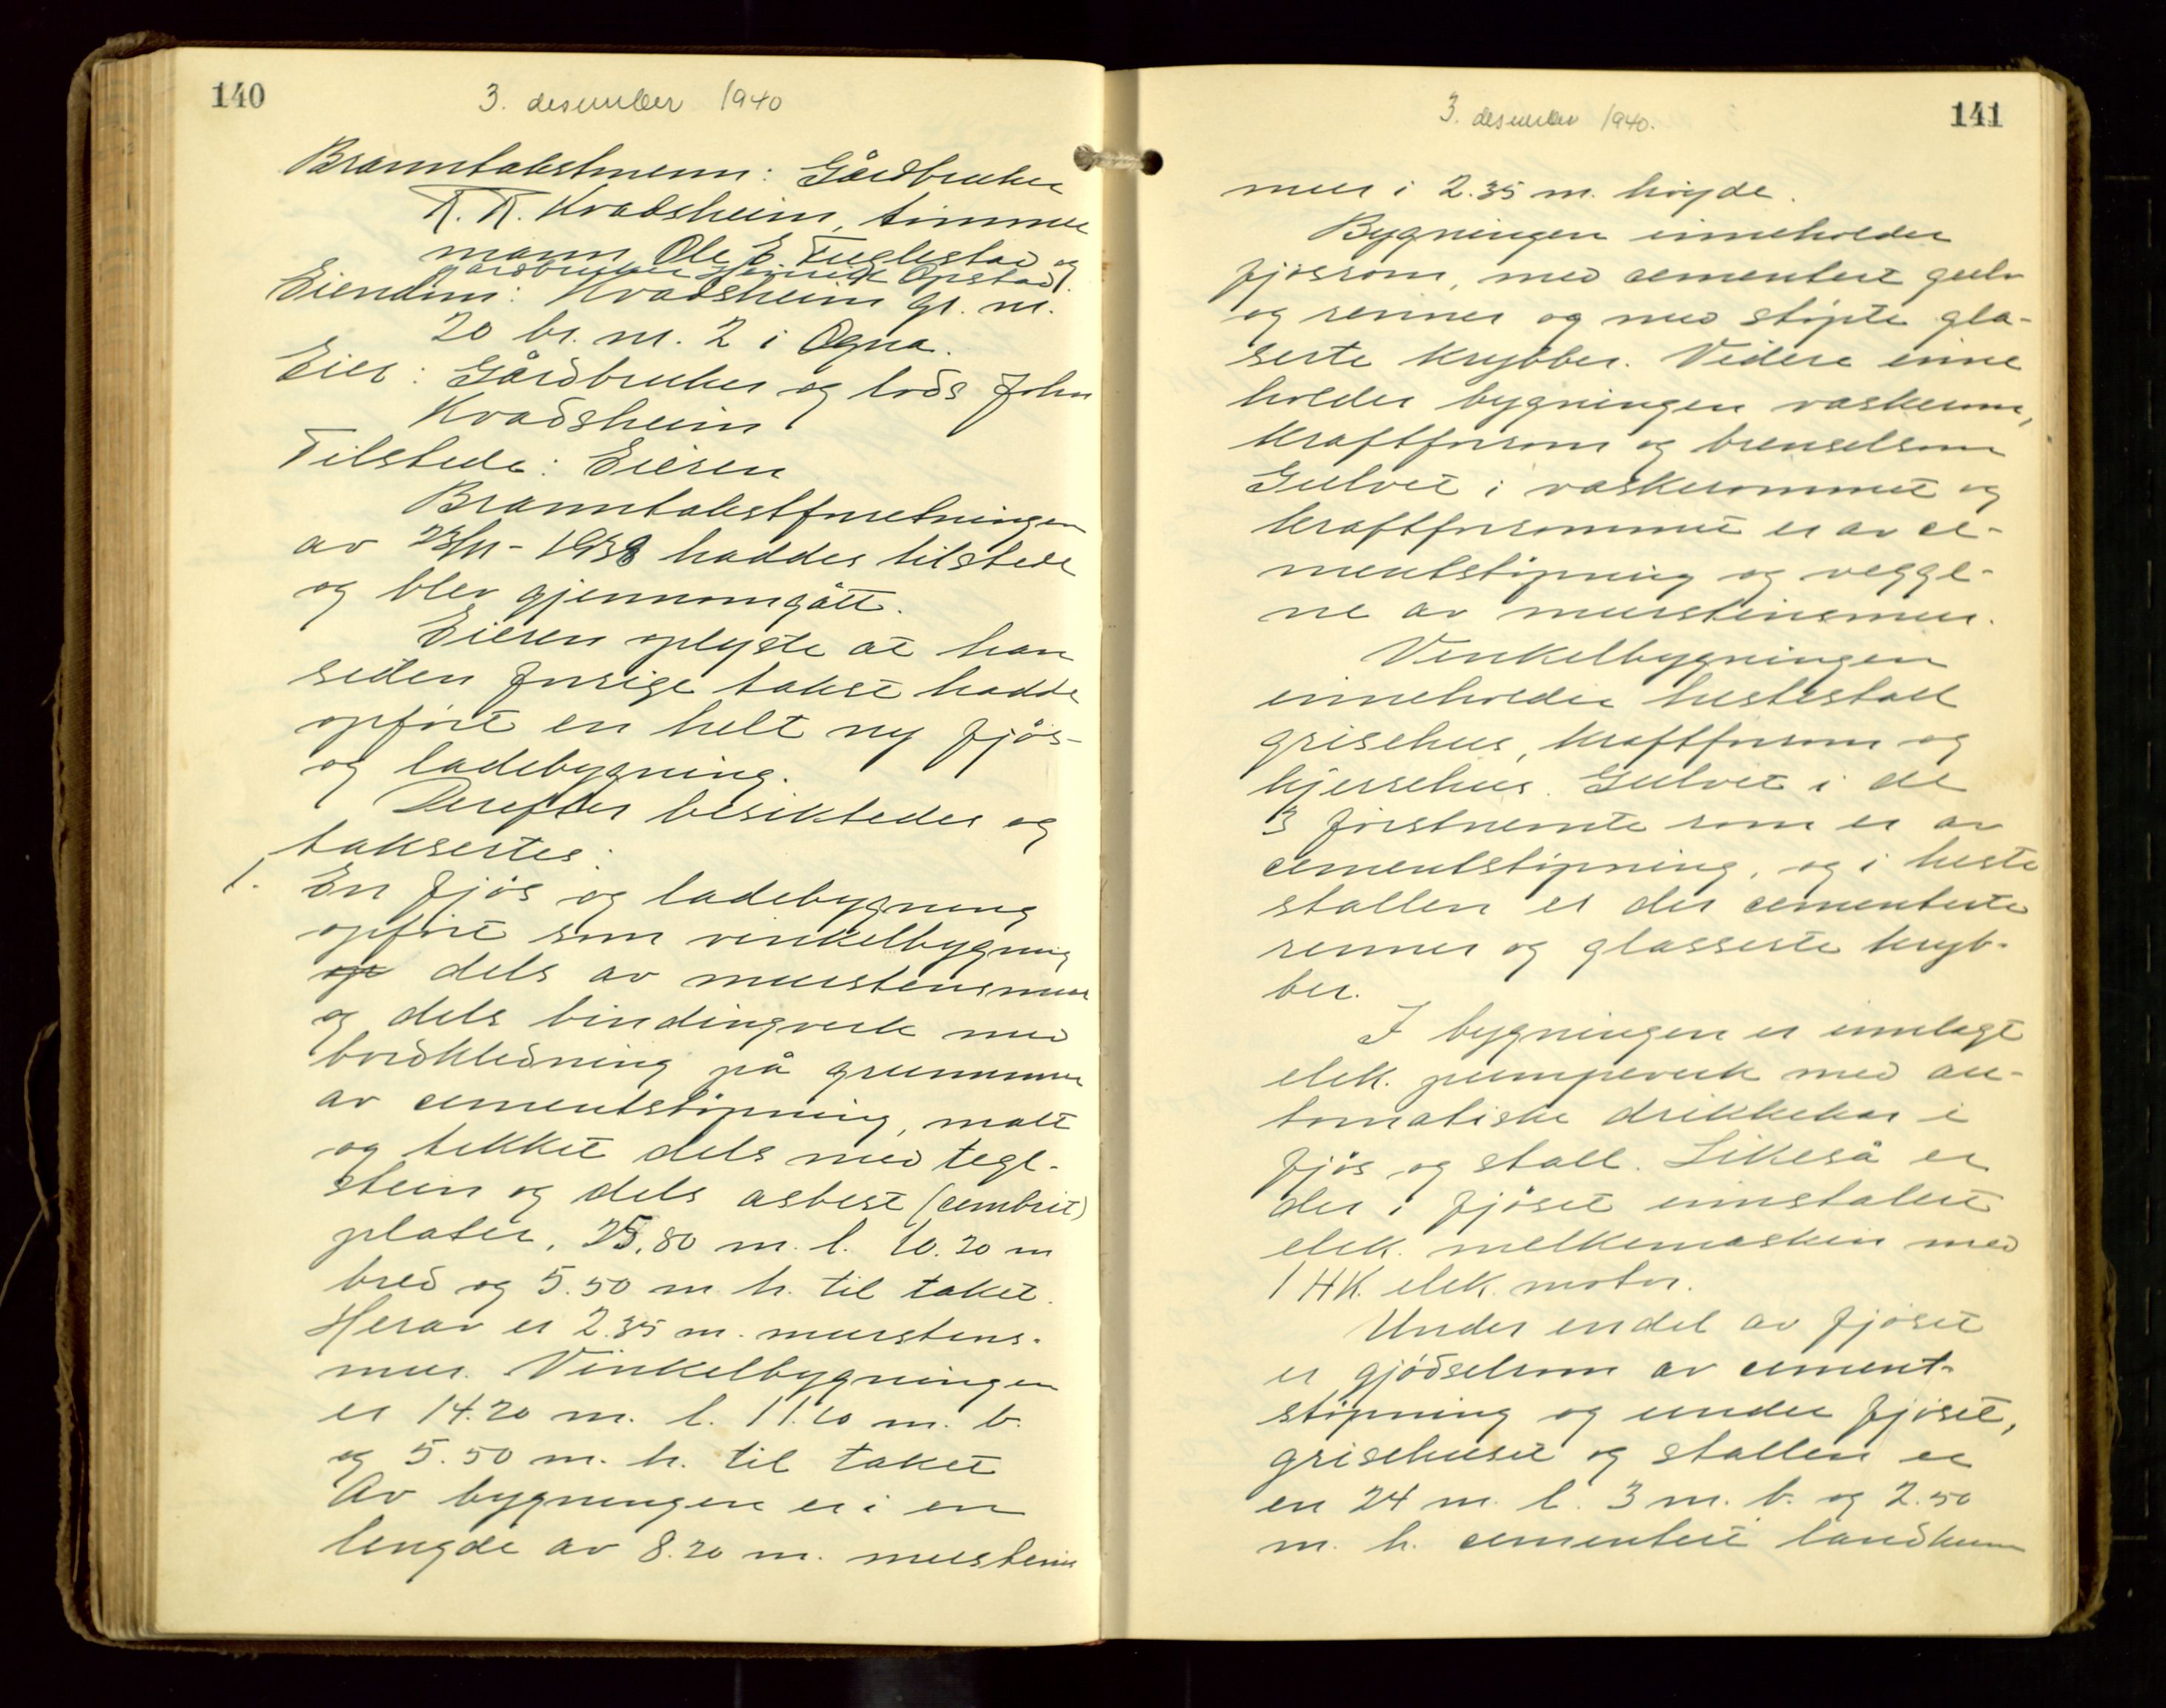 140
3. desember 1940
Branntakstmenn: Gårdbruker
K. K. Kvadsheim, timmer
mann Ole E. Fuglestad og
gårdbruker Henrik Opstad.
Eiendom: Kvadsheim gr. nr.
20 br. nr. 2 i Ogna.
Eier: Gårdbruker og lods John
Kvadsheim
Tilstede: Eieren
Branntakstforretningen
av 23/11-1938 haddes tilstede
og blev gjennomgått.
Eieren oplyste at han
siden forrige takst hadde
opført en helt ny fjøs-
og ladebygning.
Derefter besiktedes og
taksertes:
1. En fjøs og ladebygning
opført som vinkelbygning
op dels av murstensmur
og dels bindingverk med
bordkledning på grunnmur
av cementstøpning, malt
og tekket dels med tegl-
stein og dels asbest (cembrit)
plater, 25,80 m. l. 10.20 m
bred og 5.50 m. h. til taket.
Herav er 2.35 m. murstens-
mur. Vinkelbygningen
er 14.20 m. l. 11.10 m. b.
og 5.50 m. h. til taket
Av bygningen er i en
lengde av 8.20 m. murstens
141
3. desember 1940.
mur i 2.35 m. høyde.
Bygningen inneholder
fjøsrom, med cementert gulv
og renner og med støpte gla-
serte krybber. Videre inne
holder bygningen vaskerom,
kraftforrom og brenselsrom
Gulvet i vaskerommet og
kraftforrommet er av ce-
mentstøpning og vegge-
ne av murstensmur.
Vinkelbygningen
inneholder hestestall
grisehus, kraftforrom og
kjerrehus. Gulvet i de
3 førstnemte rom er av
cementstøpning, og i heste
stallen er der cementerte
renner og glasserte kryb-
ber.
I bygningen er innlagt
elek. pumpeverk med au-
tomatiske drikkekar i
fjøs og stall. Likeså er
der i fjøset innstalert
elek. melkemaskin med
1 HK. elek. motor.
Under en del av fjøset
er gjødselrom av cement-
støpning og under fjøset,
grisehuset og stallen er
en 24 m. l. 3 m. b. og 2.50
m. h. cementert landkum